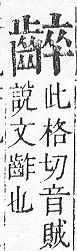 䶝
此格切音賊
說文齚也